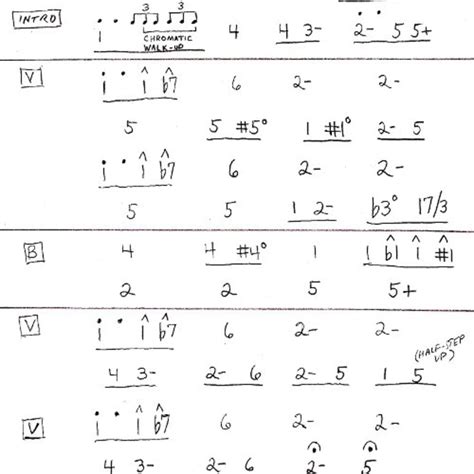 INTRO i 3 3 CHROMATIC WALK-UP 4 4 3- 2- 5 5+
V i i b7 6 2- 2-
5 5 #5° 1 #1° 2- 5
i i b7 6 2- 2-
5 5 1 2- b3° 17/3
B 4 4 #4° 1 1 b1 1 #1
2 2 5 5+
V i i b7 6 2- 2-
4 3- 2- 6 2- 5 1 5 (HALF-STEP UP)
V i i b7 6 2- 2-
4 3- 2- 6 2- 5